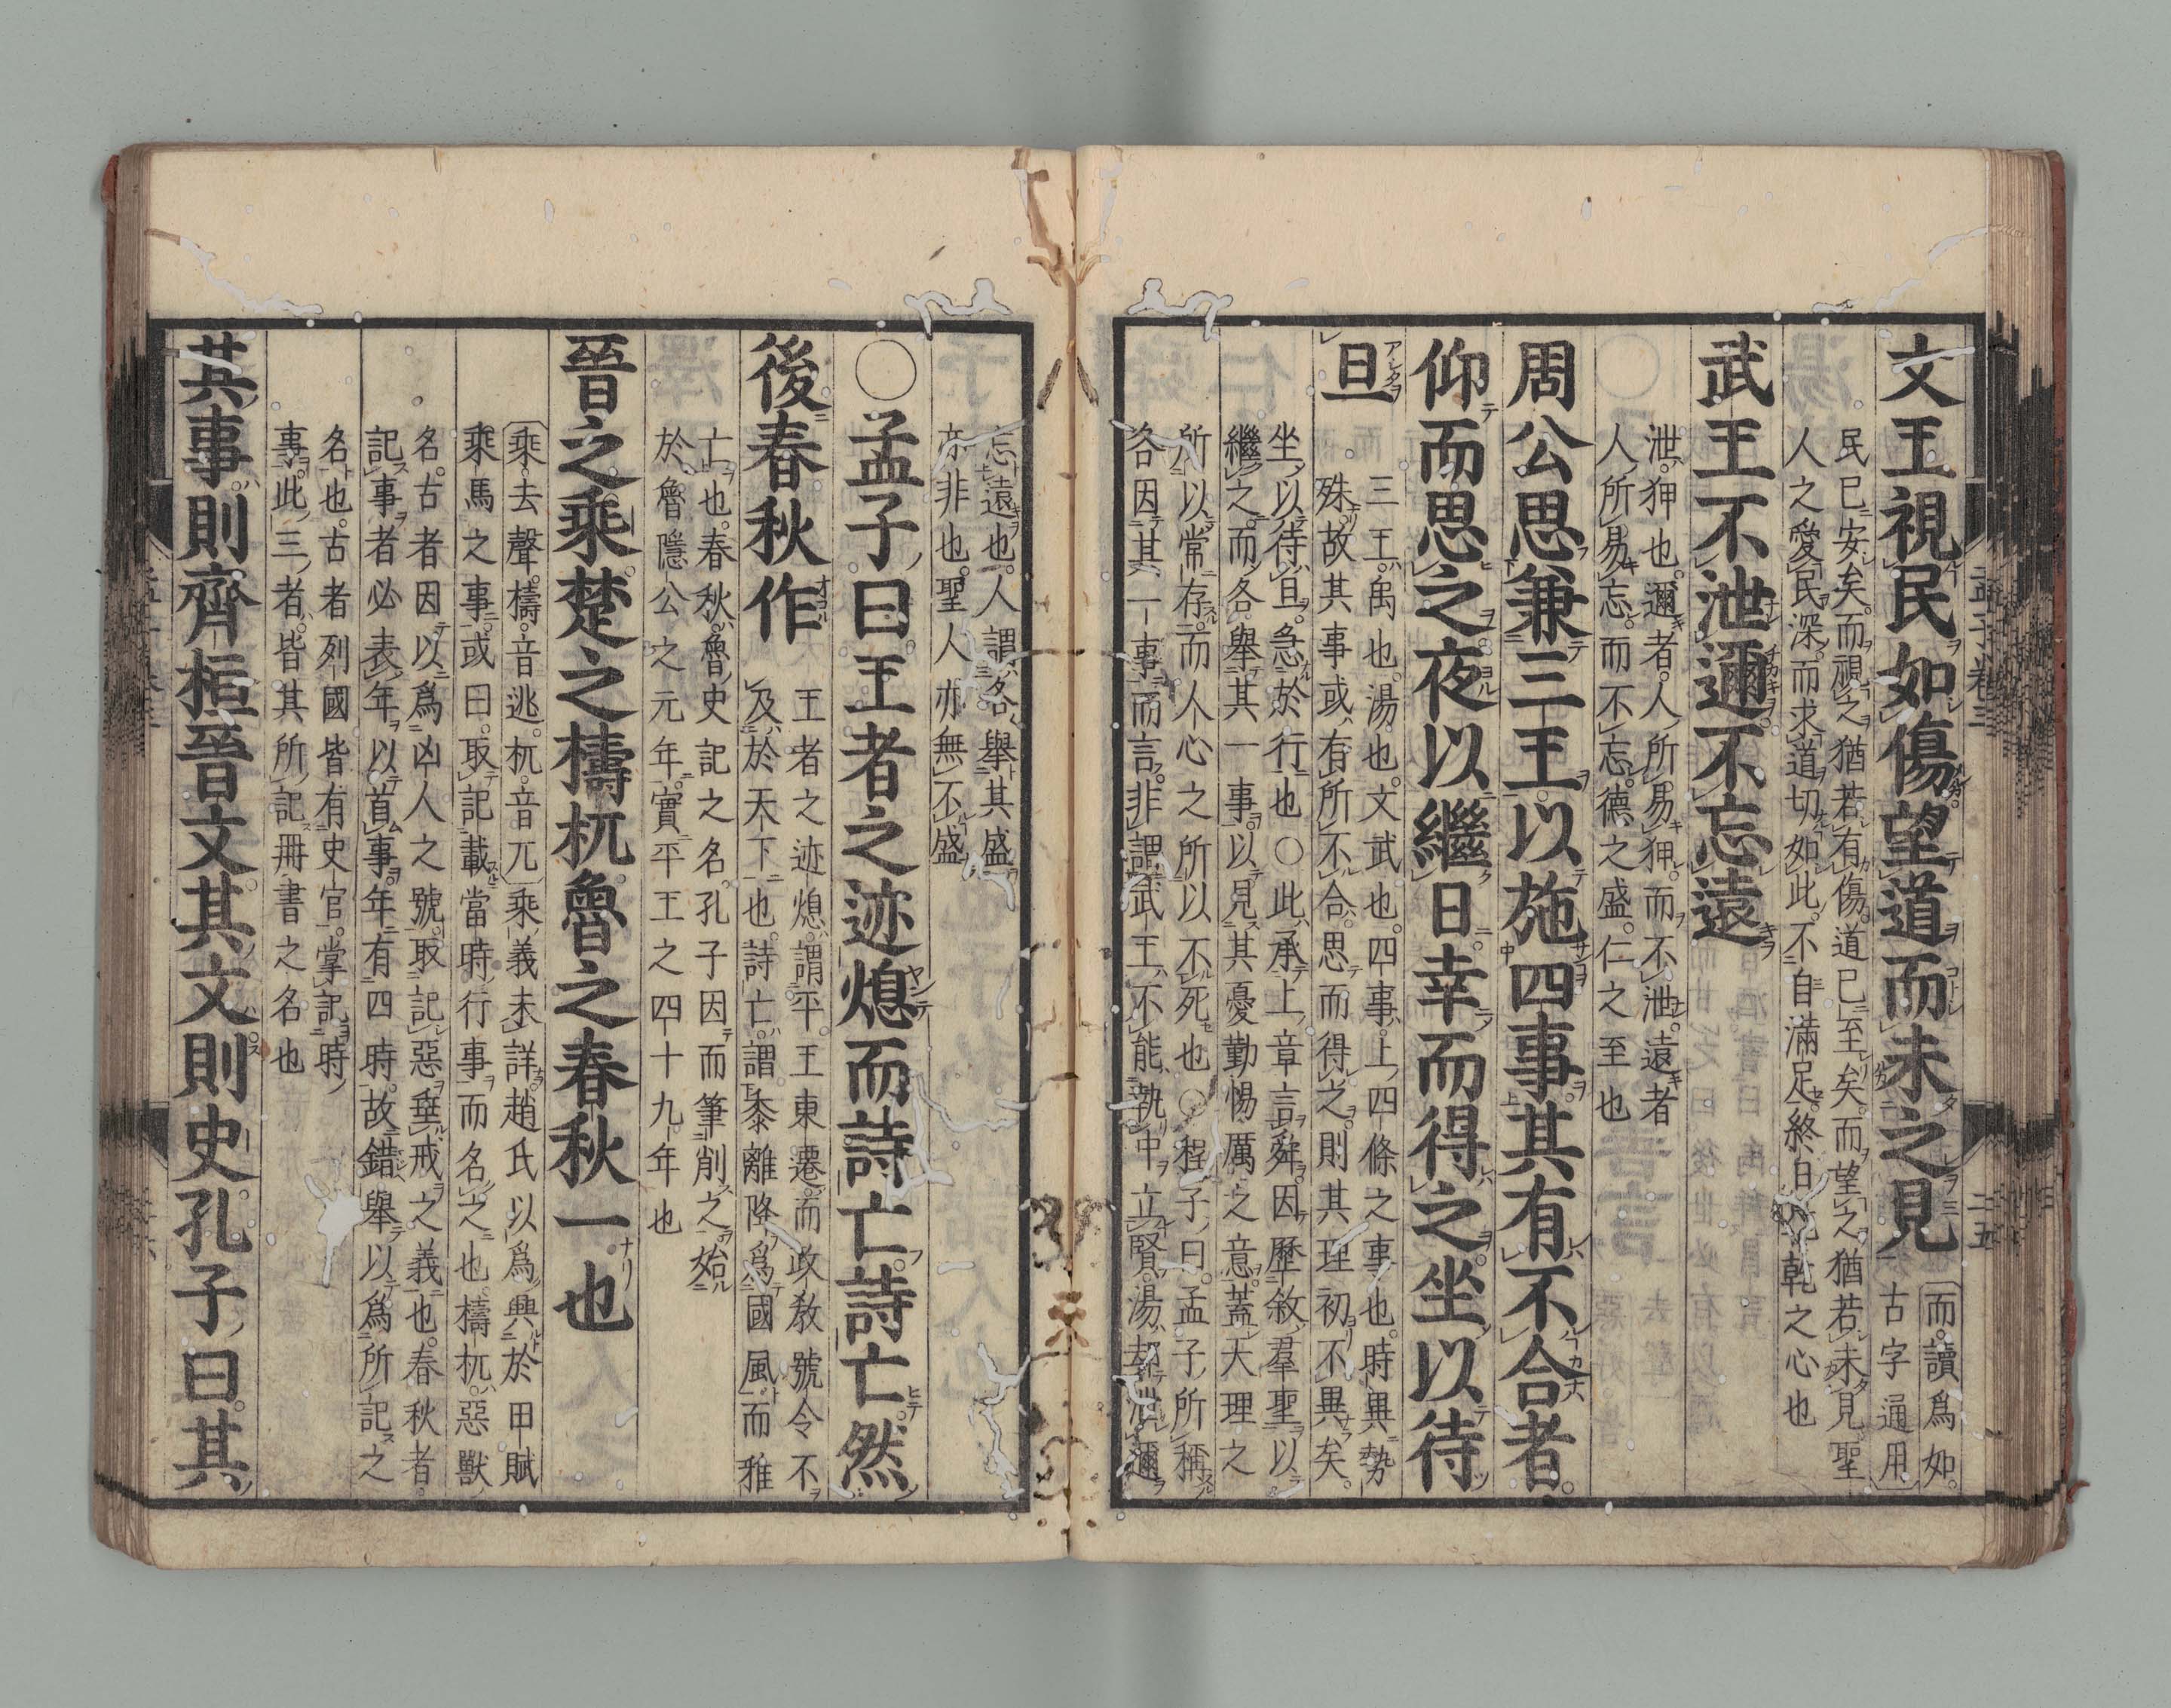 文王視民如傷望道而未之見
而讀爲如
古字通用
民已安矣而視之猶若有傷道已至矣而望之猶若未見聖
人之愛民深而求道切如此不自滿足終日乾乾之心也
武王不泄邇不忘遠
泄狎也邇者人所易狎而不泄遠者
人所易忘而不忘德之盛仁之至也
周公思兼三王以施四事其有不合者
仰而思之夜以繼日幸而得之坐以待
旦
三王禹也湯也文武也四事上四條之事也時異勢
殊故其事或有所不合思而得之則其理初不異矣
坐以待旦急於行也○此承上章言舜因歷敘羣聖以
繼之而各舉其一事以見其憂勤惕厲之意蓋天理之
所以常存而人心之所以不死也○程子曰孟子所稱
各因其一事而言非謂武王不能執中立賢湯却泄邇
忘遠也人謂各舉其盛
亦非也聖人亦無不盛
○孟子曰王者之迹熄而詩亡詩亡然
後春秋作
王者之迹熄謂平王東遷而政教號令不
及於天下也詩亡謂黍離降爲國風而雅
亡也春秋魯史記之名孔子因而筆削之始
於魯隱公之元年實平王之四十九年也
晉之乘楚之檮杌魯之春秋一也
乘去聲檮音逃杌音兀乘義未詳趙氏以爲興於田賦
乘馬之事或曰取記載當時行事而名之也檮杌惡獸
名古者因以爲凶人之號取記惡垂戒之義也春秋者
記事者必表年以首事年有四時故錯舉以爲所記之
名也古者列國皆有史官掌記時
事此三者皆其所記冊書之名也
其事則齊桓晉文其文則史孔子曰其